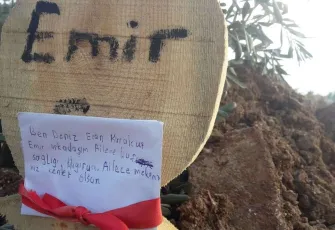 Emir
Ben Deniz Eren Karakuş
Emir arkadaşım Ailene baş
sağlığı diliyorum Ailece mekan
nız cennet olsun